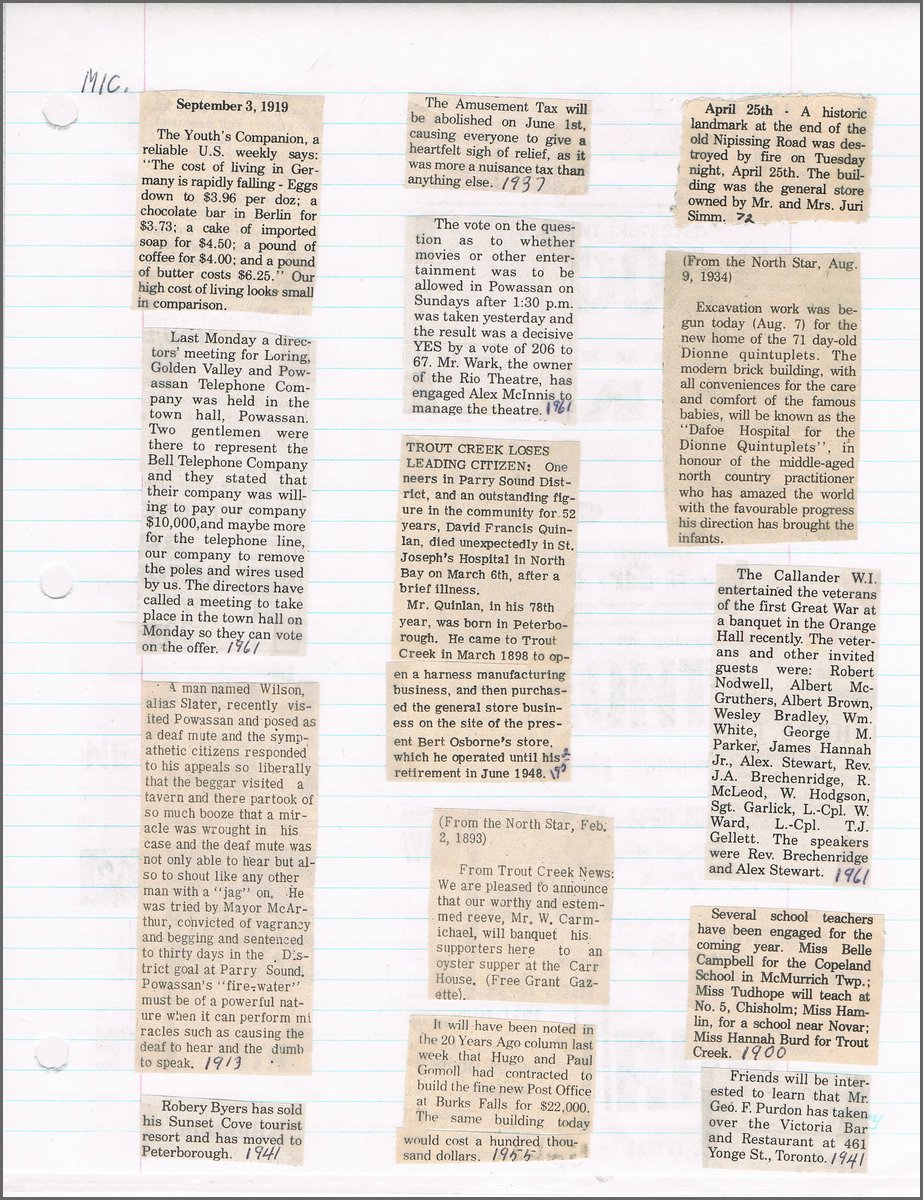 MIC.
September 3, 1919
The Youth's Companion, a
reliable U.S. weekly says:
"The cost of living in Ger-
many is rapidly falling - Eggs
down to $3.96 per doz; a
chocolate bar in Berlin for
$3.73; a cake of imported
soap for $4.50; a pound of
coffee for $4.00; and a pound
of butter costs $6.25." Our
high cost of living looks small
in comparison.
Last Monday a direc-
tors' meeting for Loring,
Golden Valley and Pow-
assan Telephone Com-
pany was held in the
town hall, Powassan.
Two gentlemen were
there to represent the
Bell Telephone Company
and they stated that
their company was will-
ing to pay our company
$10,000,and maybe more
for the telephone line,
our company to remove
the poles and wires used
by us. The directors have
called a meeting to take
place in the town hall on
Monday so they can vote
on the offer. 1961
A man named Wilson,
alias Slater, recently vis-
ited Powassan and posed as
a deaf mute and the symp-
athetic citizens responded
to his appeals so liberally
that the beggar visited a
tavern and there partook of
so much booze that a mir-
acle was wrought in his
case and the deaf mute was
not only able to hear but al-
so to shout like any other
man with a "jag" on. He
was tried by Mayor McAr-
thur, convicted of vagrancy
and begging and sentenced
to thirty days in the Dis-
trict goal at Parry Sound.
Powassan's "fire-water"
must be of a powerful nat-
ure when it can perform mi
racles such as causing the
deaf to hear and the dumb
to speak. 1913
Robery Byers has sold
his Sunset Cove tourist
resort and has moved to
Peterborough. 1941
The Amusement Tax will
be abolished on June 1st,
causing everyone to give a
heartfelt sigh of relief, as it
was more a nuisance tax than
anything else. 1937
The vote on the ques-
tion as to whether
movies or other enter-
tainment was to be
allowed in Powassan on
Sundays after 1:30 p.m.
was taken yesterday and
the result was a decisive
YES by a vote of 206 to
67. Mr. Wark, the owner
of the Rio Theatre, has
engaged Alex McInnis to
manage the theatre. 1961
TROUT CREEK LOSES
LEADING CITIZEN: One
neers in Parry Sound Dist-
rict, and an outstanding fig-
ure in the community for 52
years, David Francis Quin-
lan, died unexpectedly in St.
Joseph's Hospital in North
Bay on March 6th, after a
brief illness.
Mr. Quinlan, in his 78th
year, was born in Peterbo-
rough. He came to Trout
Creek in March 1898 to op-
en a harness manufacturing
business, and then purchas-
ed the general store busin-
ess on the site of the pres-
ent Bert Osborne's store,
which he operated until his
retirement in June 1948.
(From the North Star, Feb.
2, 1893)
From Trout Creek News:
We are pleased to announce
that our worthy and estem-
med reeve, Mr. W. Carm-
ichael, will banquet his
supporters here to an
oyster supper at the Carr
House. (Free Grant Gaz-
ette).
It will have been noted in
the 20 Years Ago column last
week that Hugo and Paul
Gomoll had contracted to
build the fine new Post Office
at Burks Falls for $22,000.
The same building today
would cost a hundred thou-
sand dollars. 1955
April 25th - A historic
landmark at the end of the
old Nipissing Road was des-
troyed by fire on Tuesday
night, April 25th. The buil-
ding was the general store
owned by Mr. and Mrs. Juri
Simm. 72
(From the North Star, Aug.
9, 1934)
Excavation work was be-
gun today (Aug. 7) for the
new home of the 71 day-old
Dionne quintuplets. The
modern brick building, with
all conveniences for the care
and comfort of the famous
babies, will be known as the
"Dafoe Hospital for the
Dionne Quintuplets", in
honour of the middle-aged
north country practitioner
who has amazed the world
with the favourable progress
his direction has brought the
infants.
The Callander W.I.
entertained the veterans
of the first Great War at
a banquet in the Orange
Hall recently. The veter-
ans and other invited
guests were: Robert
Nodwell, Albert Mc-
Gruthers, Albert Brown,
Wesley Bradley, Wm.
White, George M.
Parker, James Hannah
Jr., Alex. Stewart, Rev.
J.A. Brechenridge, R.
McLeod, W. Hodgson,
Sgt. Garlick, L.-Cpl. W.
Ward, L.-Cpl. T.J.
Gellett. The speakers
were Rev. Brechenridge
and Alex Stewart. 1961
Several school teachers
have been engaged for the
coming year. Miss Belle
Campbell for the Copeland
School in McMurrich Twp.;
Miss Tudhope will teach at
No. 5, Chisholm; Miss Ham-
lin, for a school near Novar;
Miss Hannah Burd for Trout
Creek. 1900
Friends will be inter-
ested to learn that Mr.
Geo. F. Purdon has taken
over the Victoria Bar
and Restaurant at 461
Yonge St., Toronto. 1941